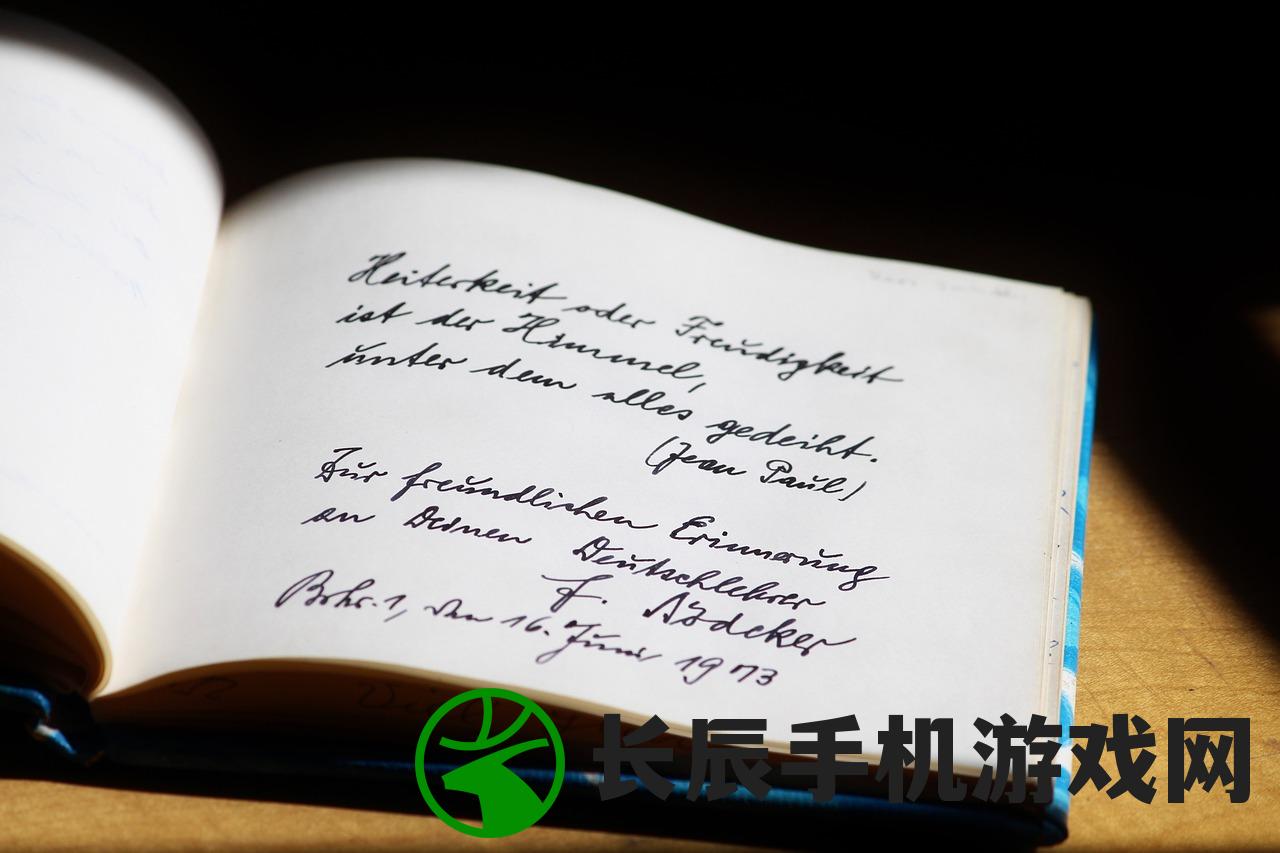 Heiterkeit oder Freudigkeit
ist der Himmel,
unter dem alles gedeiht.
(Jean Paul)
Zur freundlichen Erinnerung
an Deinen Deutschlehrer
F.
den 16. Juni 1973
长辰手机游戏网